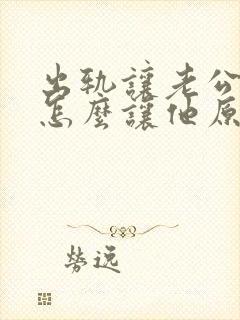 出轨讓老公
怎麼讓他原
勞逸